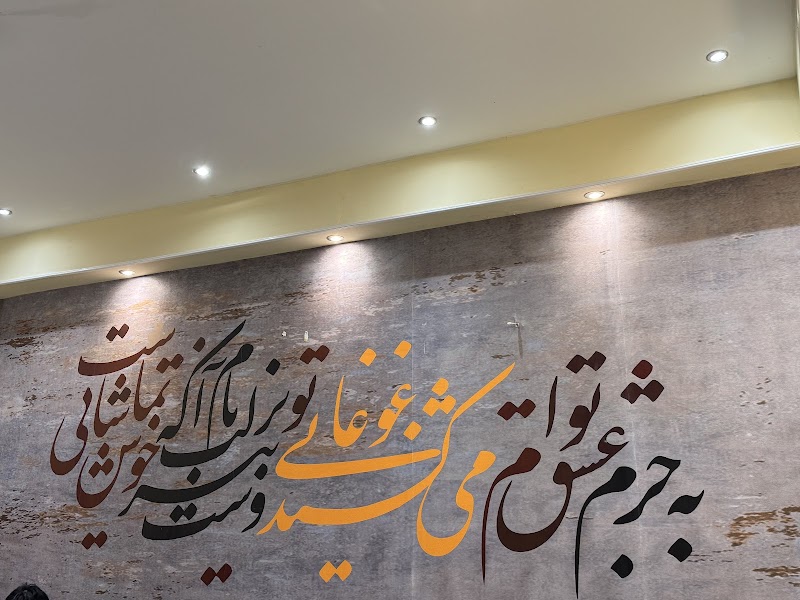 به جرم عشق توام می کشند و غوغاییست تو نیز بر لب بام آ که خوش تماشاییست